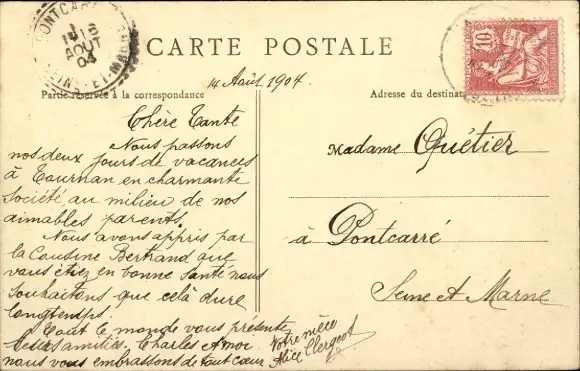 PONTCARRÉ
AOUT
04
SEINE-ET-MARNE
CARTE POSTALE
10
14 Août 1904.
Partie réservée à la correspondance
Adresse du destinat
Chère Tante
Nous passons
nos deux jours de vacances
à Tournan en charmante
Société au milieu de nos
aimables parents.
Nous avons appris par
la Cousine Bertrand que
vous étiez en bonne Santé nous
Souhaitons que celà dure
longtemps.
Tout le monde vous présente
ses amitiés. Charles et moi
nous vous embrassons de tout cœur
Votre nièce
Alice Clergeot
Madame Quétier
à Pontcarré
Seine et Marne